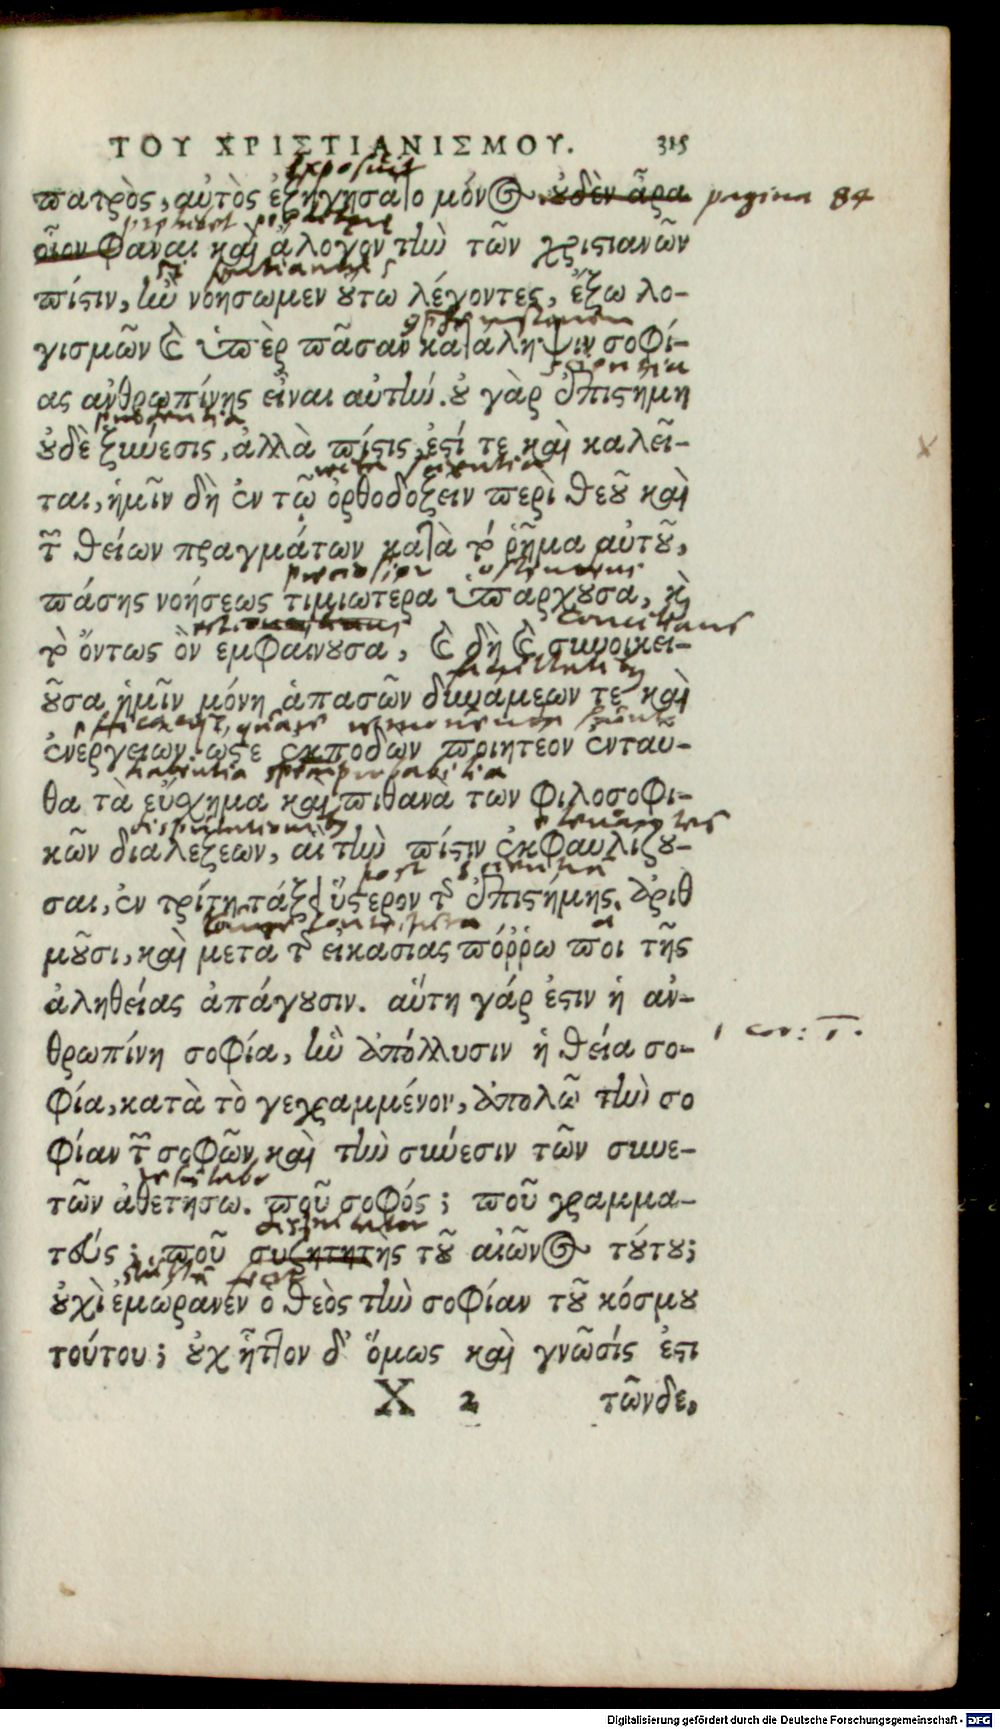 ΤΟΥ ΧΡΙΣΤΙΑΝΙΣΜΟΥ. 315
exposuit
πατρὸς, αὐτὸς ἐξηγήσαιο μόνος οὐδὲν ἄρα pagina 84
οἷον φαναι καὶ ἄλογον τὴν τῶν χριστιανῶν
πίστιν, ἣν νοήσωμεν οὕτω λέγοντες, ἔξω λο-
γισμῶν καὶ ὑπὲρ πᾶσαν κατάληψιν σοφί-
sapientia
ας ἀνθρωπίνης εἶναι αὐτήν. οὐ γὰρ ἐπιστήμη
prudentia
οὐδὲ ξύνεσις, ἀλλὰ πίστις ἐστί τε καὶ καλεῖ-
ται, ἡμῖν δὴ ἐν τῷ ὀρθοδοξεῖν περὶ θεοῦ καὶ
τῶν θείων πραγμάτων κατὰ τὸ ῥῆμα αὐτοῦ,
πάσης νοήσεως τιμιωτερα ὑπαρχουσα, καὶ
concilians
τὸ ὄντως ὂν εμφαινουσα, καὶ δὴ καὶ συνοικει-
οῦσα ἡμῖν μόνη ἁπασῶν δυνάμεων τε καὶ
ἐνεργειων. ωστε ἐκποδων ποιητέον ἐνταυ-
habentia speciem probabilia
θα τὰ εὔσχημα καὶ πιθανὰ των φιλοσοφι-
disputationes
κῶν διαλεξεων, αἳ τὴν πίστιν ἐκφαυλιζου-
post scientiā
σαι, ἐν τρίτῃ τάξει ὕστερον τῆς ἐπιστήμης. ἀριθ
μοῦσι, καὶ μετα τῆς εἰκασιας πόῤῥω ποι τῆς
ἀληθείας ἀπάγουσιν. αὕτη γάρ ἐστιν ἡ αν-
1 cor: 1.
θρωπίνη σοφία, ἣν ἀπόλλυσιν ἡ θεία σο-
φία, κατὰ τὸ γεγραμμένον, ἀπολῶ τὴν σο
φίαν τῶν σοφῶν καὶ τὴν σύνεσιν τῶν συνε-
τῶν ἀθετήσω. ποῦ σοφός; ποῦ γραμμα-
disputator
τεύς; ποῦ συζητητὴς τοῦ αἰῶνος τούτου;
οὐχὶ ἐμώρανεν ὁ θεὸς τὴν σοφίαν τοῦ κόσμου
τούτου; οὐχ ἧττον δ' ὅμως καὶ γνῶσίς ἐστι
X 2 τῶνδε,
Digitalisierung gefördert durch die Deutsche Forschungsgemeinschaft - DFG